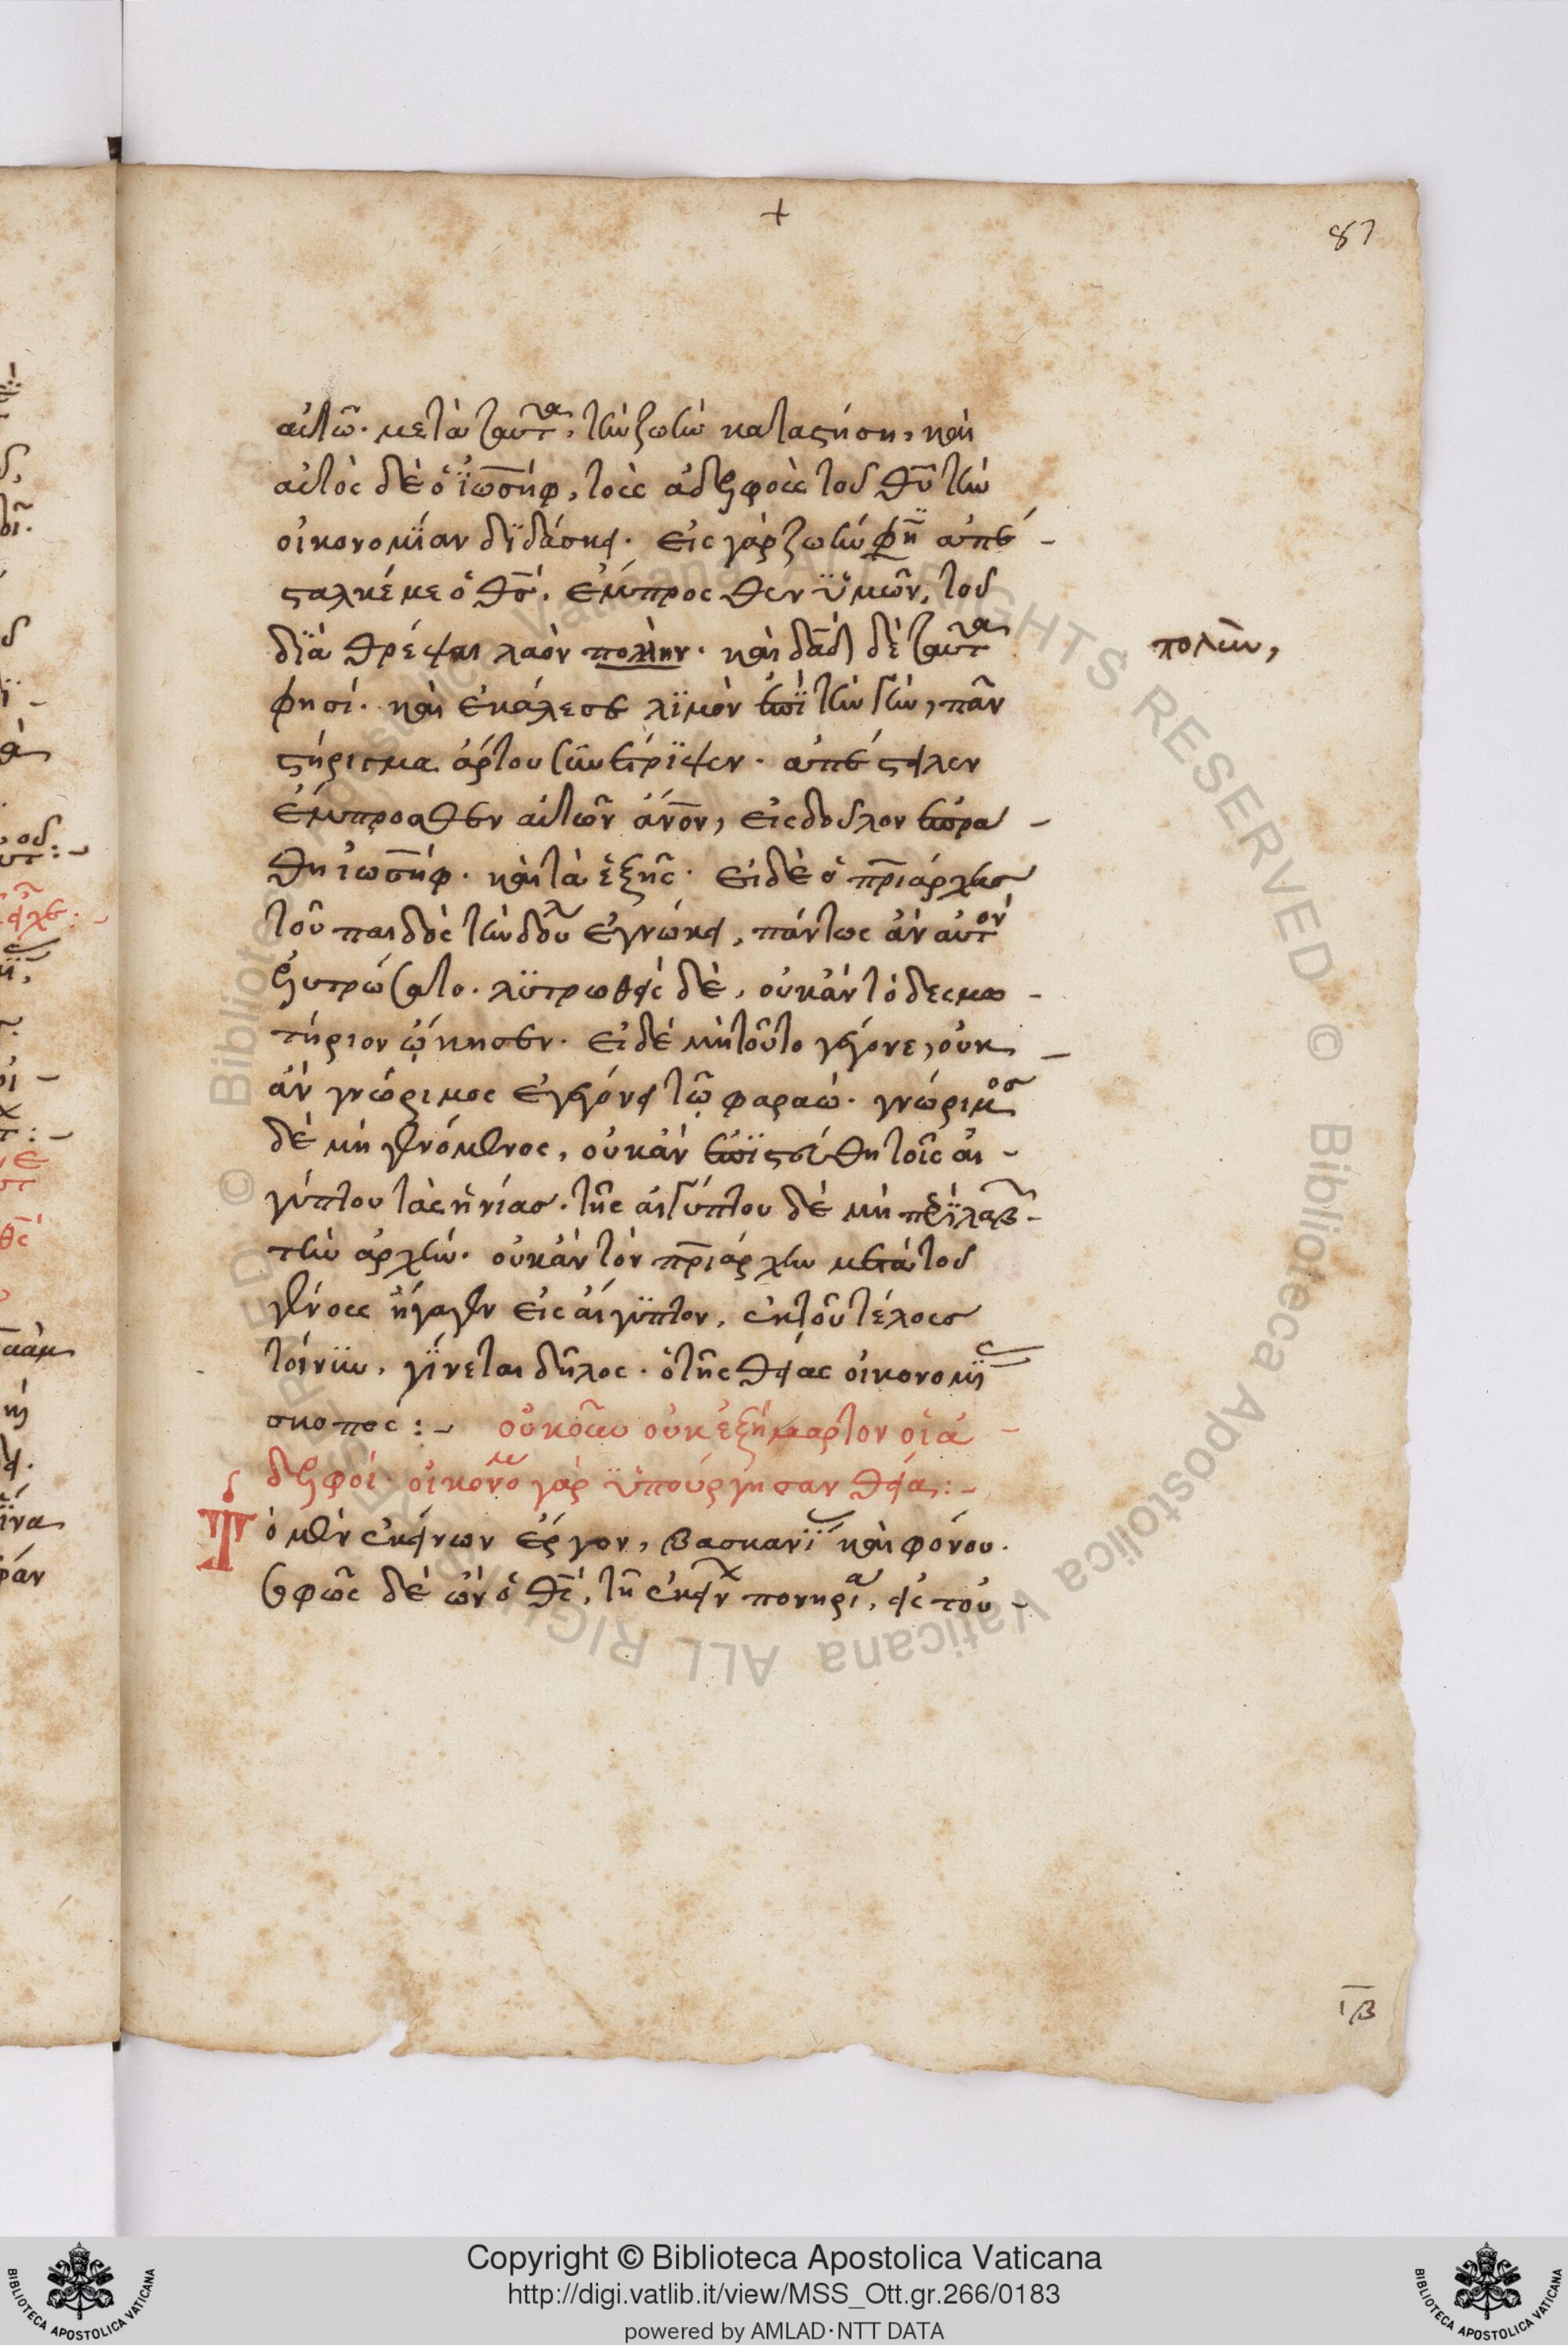 +
87
αὐτῶ. μετὰ ταῦτα, τὴν ζωὴν καταστήση, καὶ
αὐτὸς δὲ ὁ ἰωσὴφ, τοὺς ἀδελφοὺς τοῦ θυ τὴν
οἰκονομΐαν δϊδάσκει. εἰς γὰρ ζωὴν φη ἀπέ-
σταλκέ με ὁ θσ. ἔμπροσθεν ὑμῶν, τοῦ
δϊὰ θρέψαι λαὸν πολὴν. καὶ δαδ δὲ ταῦτα
πολὺν,
φησί. καὶ ἐκάλεσε λϊμὸν ἐπῒ τὴν γὴν, πᾶν
στήριγμα ἄρτου συνέτρϊψεν. ἀπέστειλεν
ἔμπροσθεν αὐτῶν ἀνον, εἰς δοῦλον ἐπρά-
θη ἰωσὴφ. καὶ τὰ ἑξῆς. εἰ δὲ ὁ πριάρχησ
τοῦ παιδὸς τὴν δου ἐγνώκει, πάντως ἂν αὐτὸν
ἐλυτρώσατο. λϋτρωθεὶς δὲ, οὐκ ἂν τὸ δεσμω-
τήριον ᾤκησεν. εἰ δὲ μὴ τοῦτο γέγονε, οὐκ-
ἂν γνώριμος ἐγεγόνει τῶ φαραώ. γνώριμοσ
δὲ μὴ γενόμενος, οὐκ ἂν ἐπϊστεύθη τοῖς αἰ-
γύπτου τὰς ἡνίασ. τῆς αἰγύπτου δὲ μὴ περϊλαβ-
τὴν ἀρχὴν. οὐκ ἂν τὸν πριάρχην μετὰ τοῦ
γένους ἤγαγεν εἰς αἴγϋπτον, ἐκ τοῦ τέλουσ
τοίνϋν, γΐνεται δῆλος. ὁ τῆς θείας οἰκονομΐας
σκοπός:- οὐκοῦν οὐκ ἐξήμαρτον οἱ ἀ-
δελφοί. οἰκονομ γὰρ ὑπούργησαν θεία:-
Τὸ μὲν ἐκείνων ἔργον, βασκανΐας καὶ φόνου.
σοφῶς δὲ ὢν ὁ θς, τῆ ἐκείν πονηρία, εἰς του-
ιβ
Copyright © Biblioteca Apostolica Vaticana
http://digi.vatlib.it/view/MSS_Ott.gr.266/0183
powered by AMLAD·NTT DATA